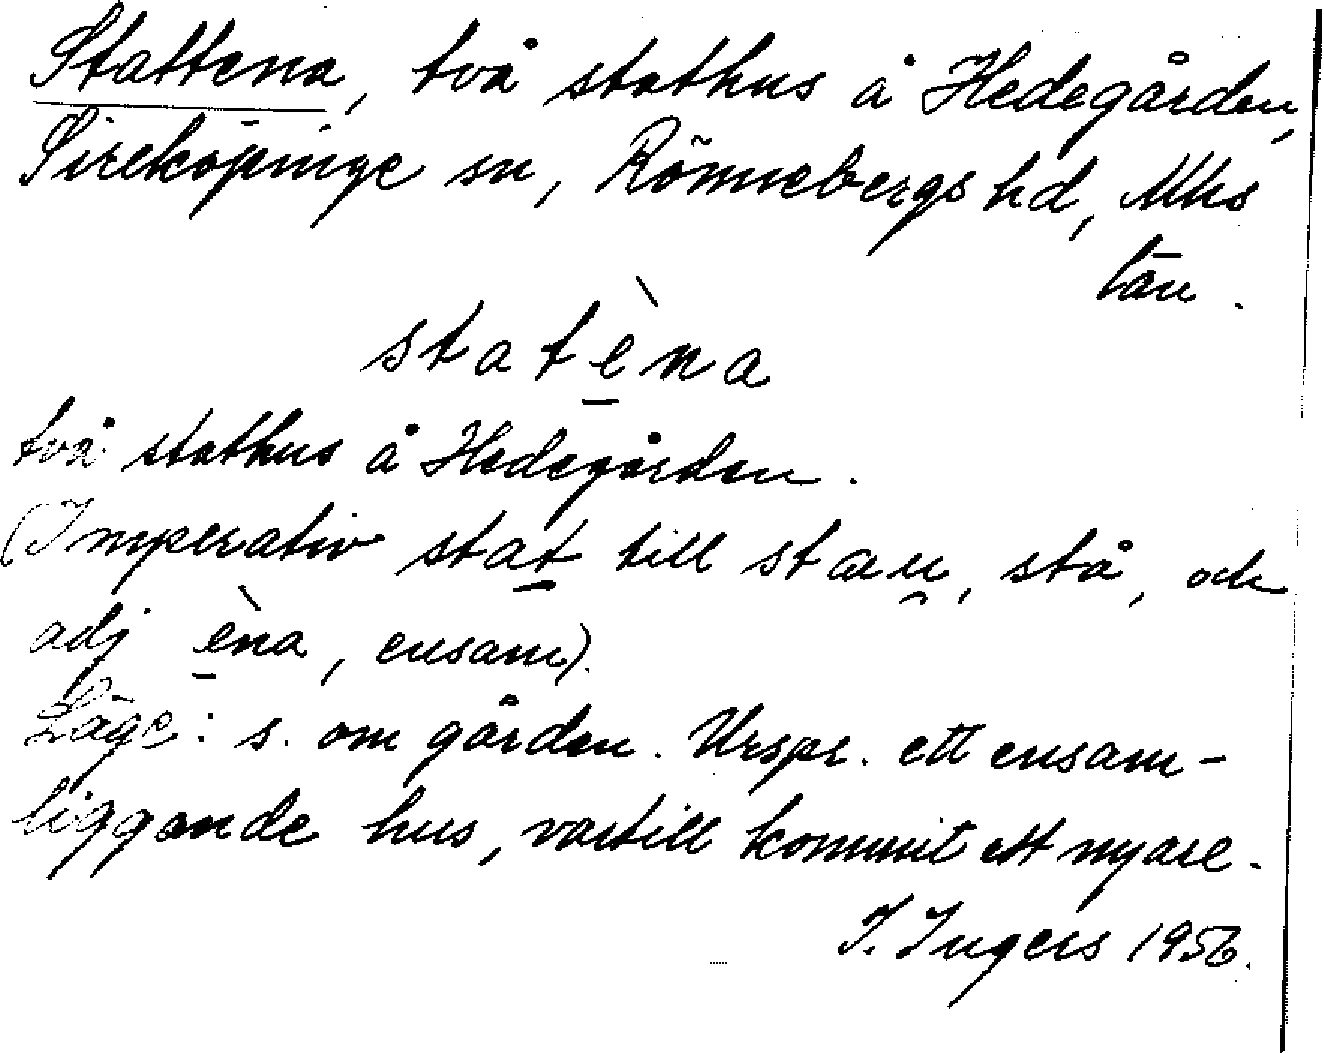 Stattena, två stathus å Hedegården,
Sireköpinge sn, Rönnebergs hd, Mhs
län.
statèna
två stathus å Hedegården.
(Imperativ stat till stau, stå, och
adj èna, ensam).
Läge: s. om gården. Urspr. ett ensam-
liggande hus, vartill kommit ett nyare.
I. Ingers 1956.